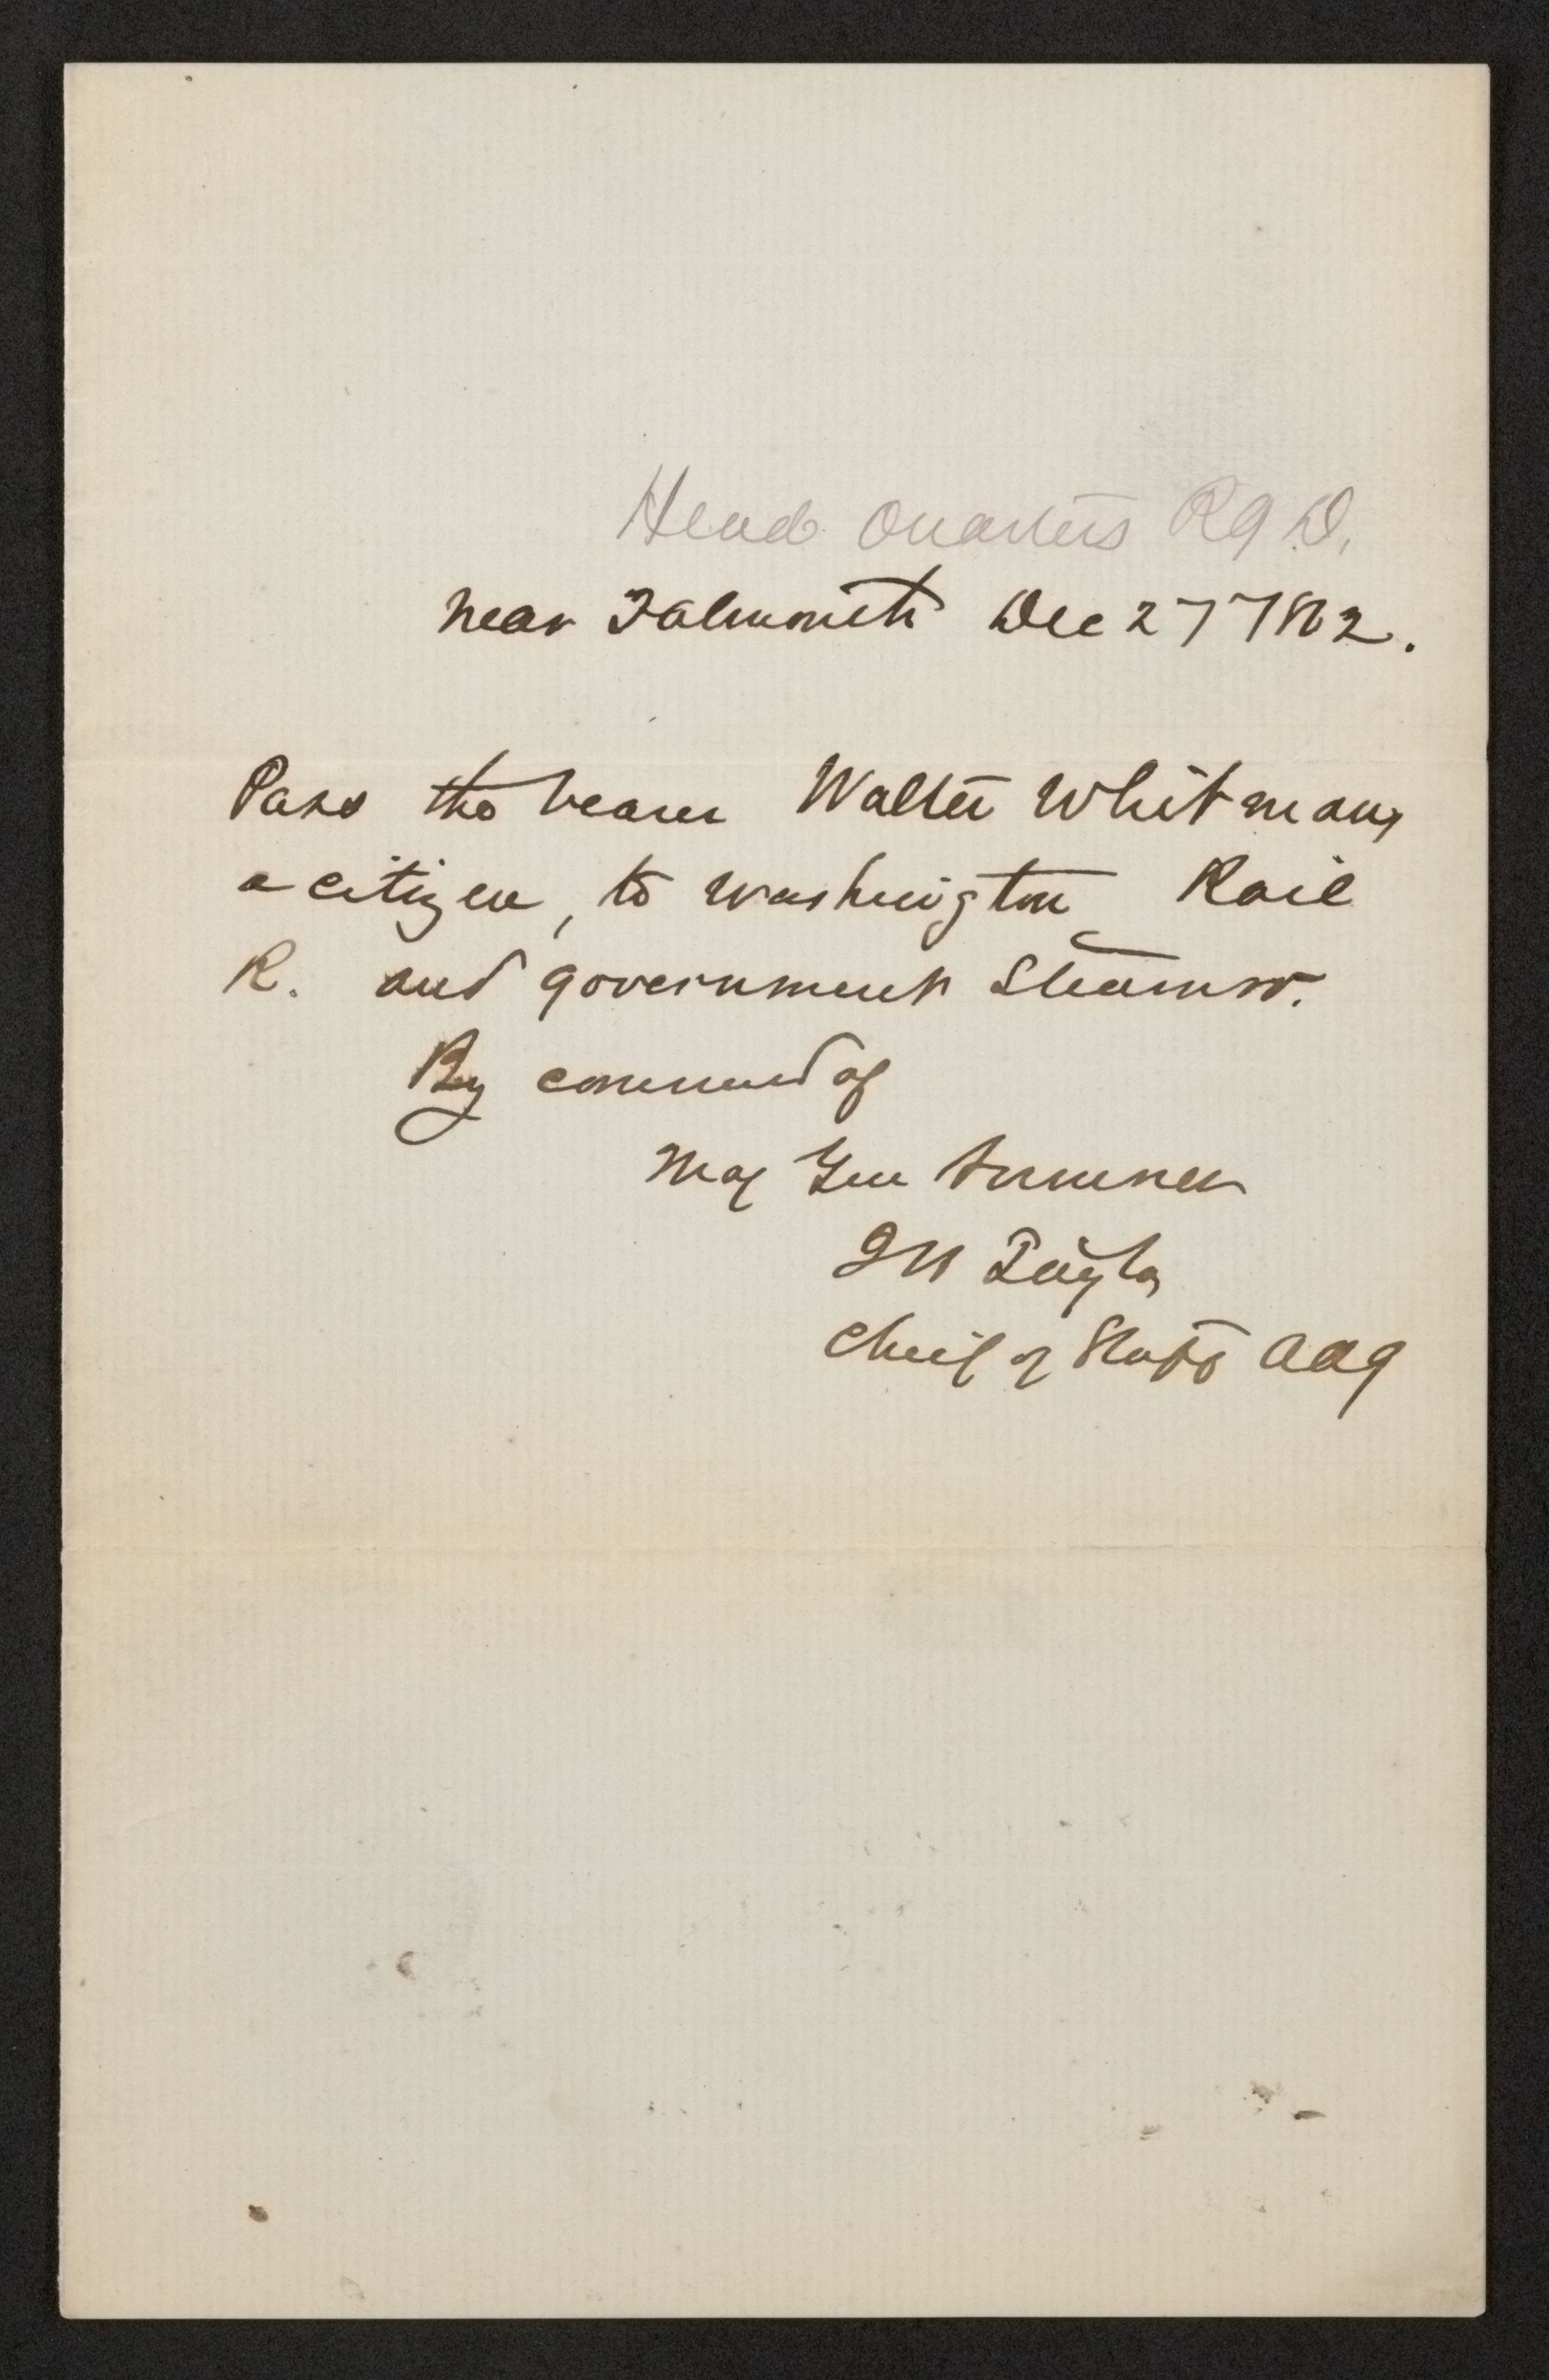 Head Quarters R G D,
near Falmouth Dec 27 1862.
Pass the bearer Walter Whitman,
a citizen, to Washington Rail
R. and government Steamer.
By command of
Maj Gen Sumner
J H Taylor
Chief of Staff A A G